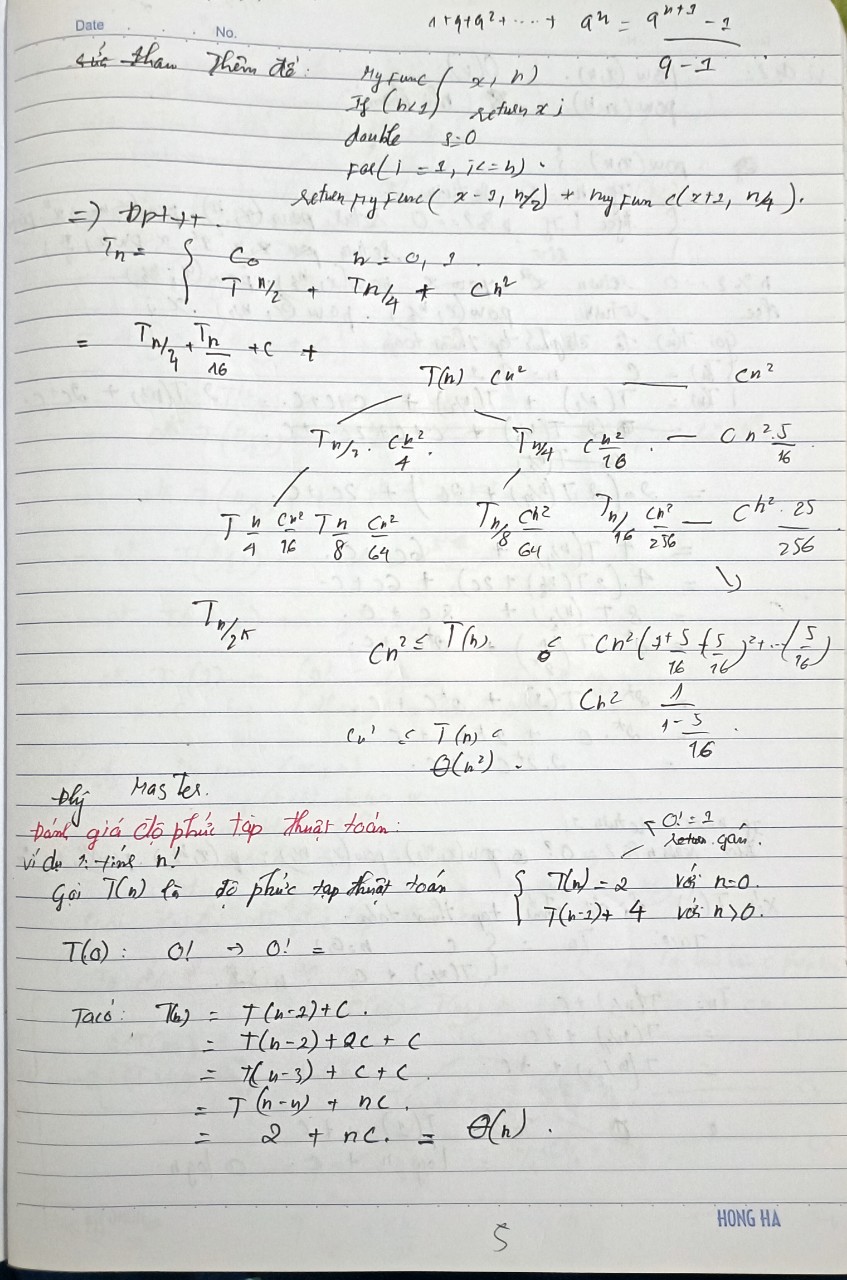 Date No.
1+q+q²+....+ qⁿ = (qⁿ⁺¹ - 1)/(q - 1)
tham thêm đề: My Func ( x, n)
If (n<1) return x;
double s=0
For(i = 1, i<=n) .
return My Func( x-1, n/2) + my Func(x+2, n/4).
=)
Tn = { C₀ n = 0, 1.
T n/2 + Tn/4 + Cn²
= Tn/4 + Tn/16 + C +
T(n) Cn² — Cn²
Tn/2 . Cn²/4 . Tn/4 Cn²/16 . — Cn². 5/16
T n/4 Cn²/16 Tn/8 Cn²/64 Tn/8 Cn²/64 Tn/16 Cn²/256 — Cn² . 25/256
Tn/2ᴷ
Cn² ≤ T(n) ≤ Cn² (1+ 5/16 + (5/16)² + ...(5/16)
Cn² 1/(1 - 5/16) .
≤ T(n) <
Θ(n²) .
Đlý Master.
Đánh giá độ phức tạp thuật toán:
0! = 1
return. gán.
ví dụ 1: tính n!
Gọi T(n) là độ phức tạp thuật toán { T(n) = 2 với n=0.
T(n-1)+ 4 với n>0.
T(0) : 0! → 0! =
Ta có: T(n) = T(n-2) + C .
= T(n-2) + 2C + C
= T(n-3) + C + C
= T(n-n) + nC .
= 2 + nC. = Θ(n) .
HONG HA
5